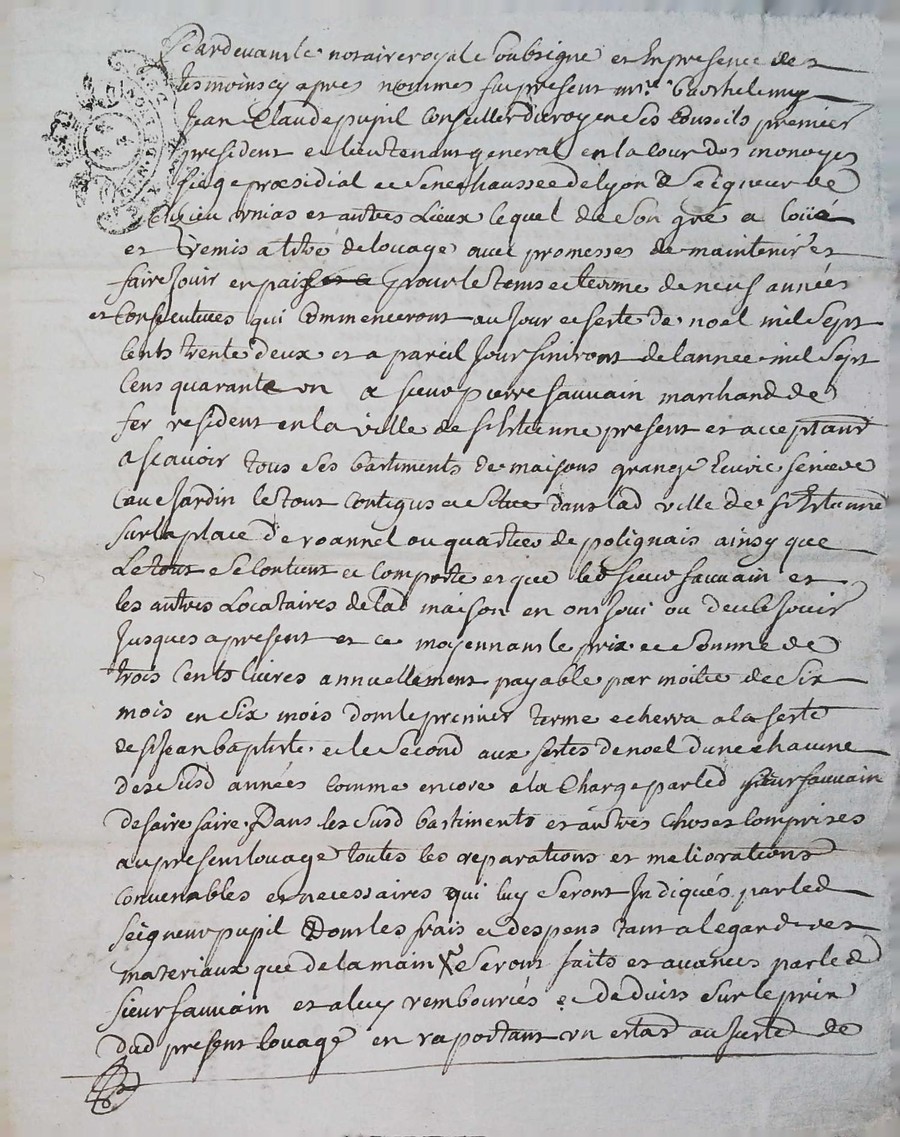 Pardevant le notaire royal soubsigné et en presence des
tesmoins cy apres nommés fut present mre Barthelemy
Jean Claude pupil Conseiller du roy en ses Conseils premier
president et lieutenant general en la Cour des monoyes
siege præsidial et senechaussée de lyon & Seigneur de
et autres Lieux lequel de son gré a loüé
et remis a titre de louage avec promesses de maintenir et
faire jouir en paix pour le tems et terme de neuf années
et Consecutives qui Commenceront au jour et feste de noel mil sept
Cents trente deux et a pareil jour finiront de lannee mil sept
Cens quarante un a sieur pierre sauvain marchand de
fer resident en la ville de st Estienne present et acceptant
a scavoir tous ses bastiments de maisons grange Ecurie
Jardin le tout Contigus et situé dans lad ville de st Estienne
sur la place de roannel ou quartier de polignais ainsy que
Le tout se Contient et Comporte et que led sieur sauvain et
les autres Locataires de lad maison en ont joui ou deub jouir
Jusques a present et ce moyennant le prix et somme de
trois Cents livres annuellement payable par moitié de six
mois en six mois dont le premier terme echerra a la feste
de st Jean baptiste et le second aux festes de noel dune chacune
des susd années comme encore a la Charge par led sieur sauvain
de faire faire Dans les susd bastiments et autres choses Comprises
au present louage toutes les reparations et meliorations
convenables et necessaires qui luy seront Indiqués par led
seigneur pupil Dont les frais et despens tant a legard des
materiaux que de la main seront faits et avancés par led
sieur sauvain et a luy remboursés et deduits sur le prix
dud present louage en raportant un estat au juste de